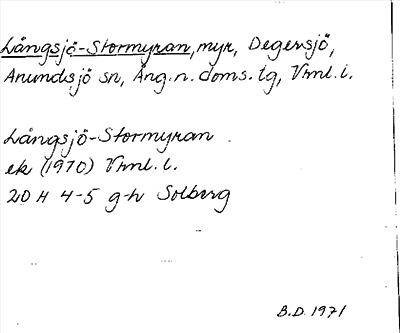 Långsjö-Stormyran, myr, Degersjö,
Anundsjö sn, Ång. n. doms. tg, Vrml. l.
Långsjö-Stormyran
ek (1970) Vrml. l.
20 H 4-5 g-h Solberg
B.D. 1971